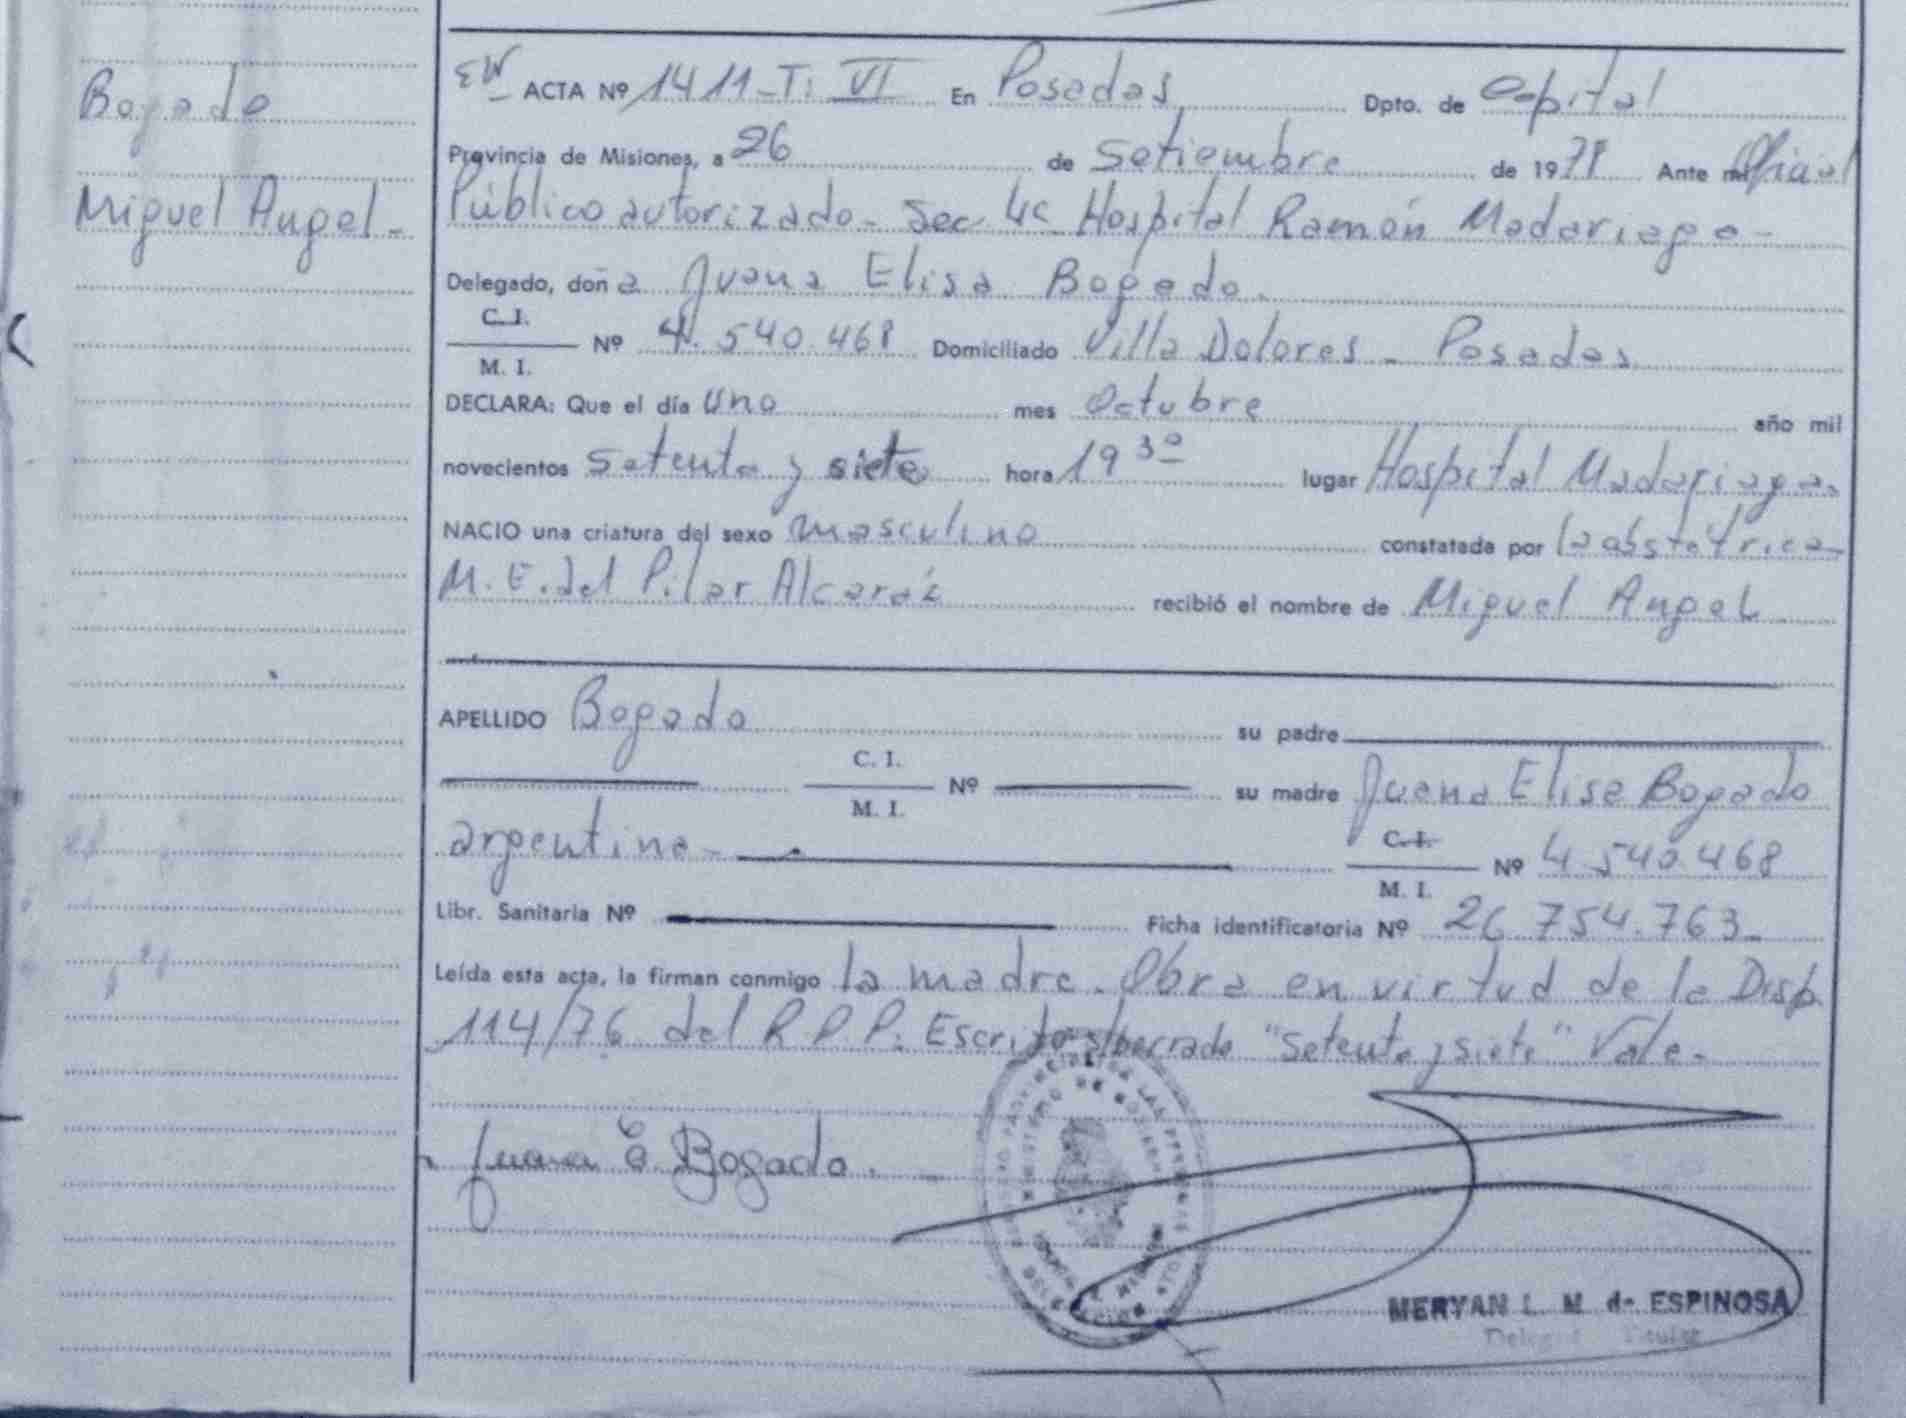 Bogado
Miguel Angel-
ACTA Nº 1411-T: VI En Posadas Dpto. de Capital
Provincia de Misiones, a 26 de Setiembre de 197 Ante mí Oficial
Público autorizado- Sec 4c Hospital Ramón Madariaga-
Delegado, doña Juana Elisa Bogado.
C.I.
M. I. Nº 4.540.468 Domiciliado Villa Dolores - Posadas
DECLARA: Que el día uno mes Octubre año mil
novecientos setenta y siete hora 19 30 lugar Hospital Madariaga.
NACIO una criatura del sexo masculino constatada por la obstétrica
M. E. del Pilar Alcaráz recibió el nombre de Miguel Angel
APELLIDO Bogado su padre
C. I.
M. I. Nº su madre Juana Elisa Bogado
argentina- C. I.
M. I. Nº 4.540.468
Libr. Sanitaria Nº Ficha identificatoria Nº 26 754.763-
Leída esta acta, la firman conmigo la madre. Obra en virtud de la Disp.
114/76 del R.P.P. Escrito s/borrado "setenta y siete" Vale-
Juana E Bogado.
MERYAN L. M. de ESPINOSA